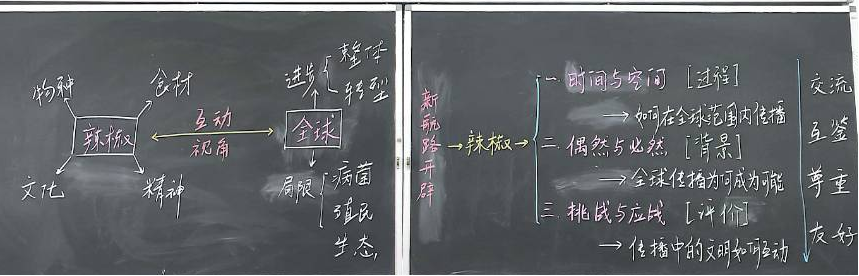 物种
食材
辣椒
文化
精神
互动
视角
进步
整体
转型
全球
局限
病菌
殖民
生态
新航路开辟
→辣椒→
一 时间与空间 [过程]
→如何在全球范围内传播
二 偶然与必然 [背景]
→全球传播为何成为可能
三 挑战与应战 [评价]
→传播中的文明如何互动
交流
互鉴
尊重
友好